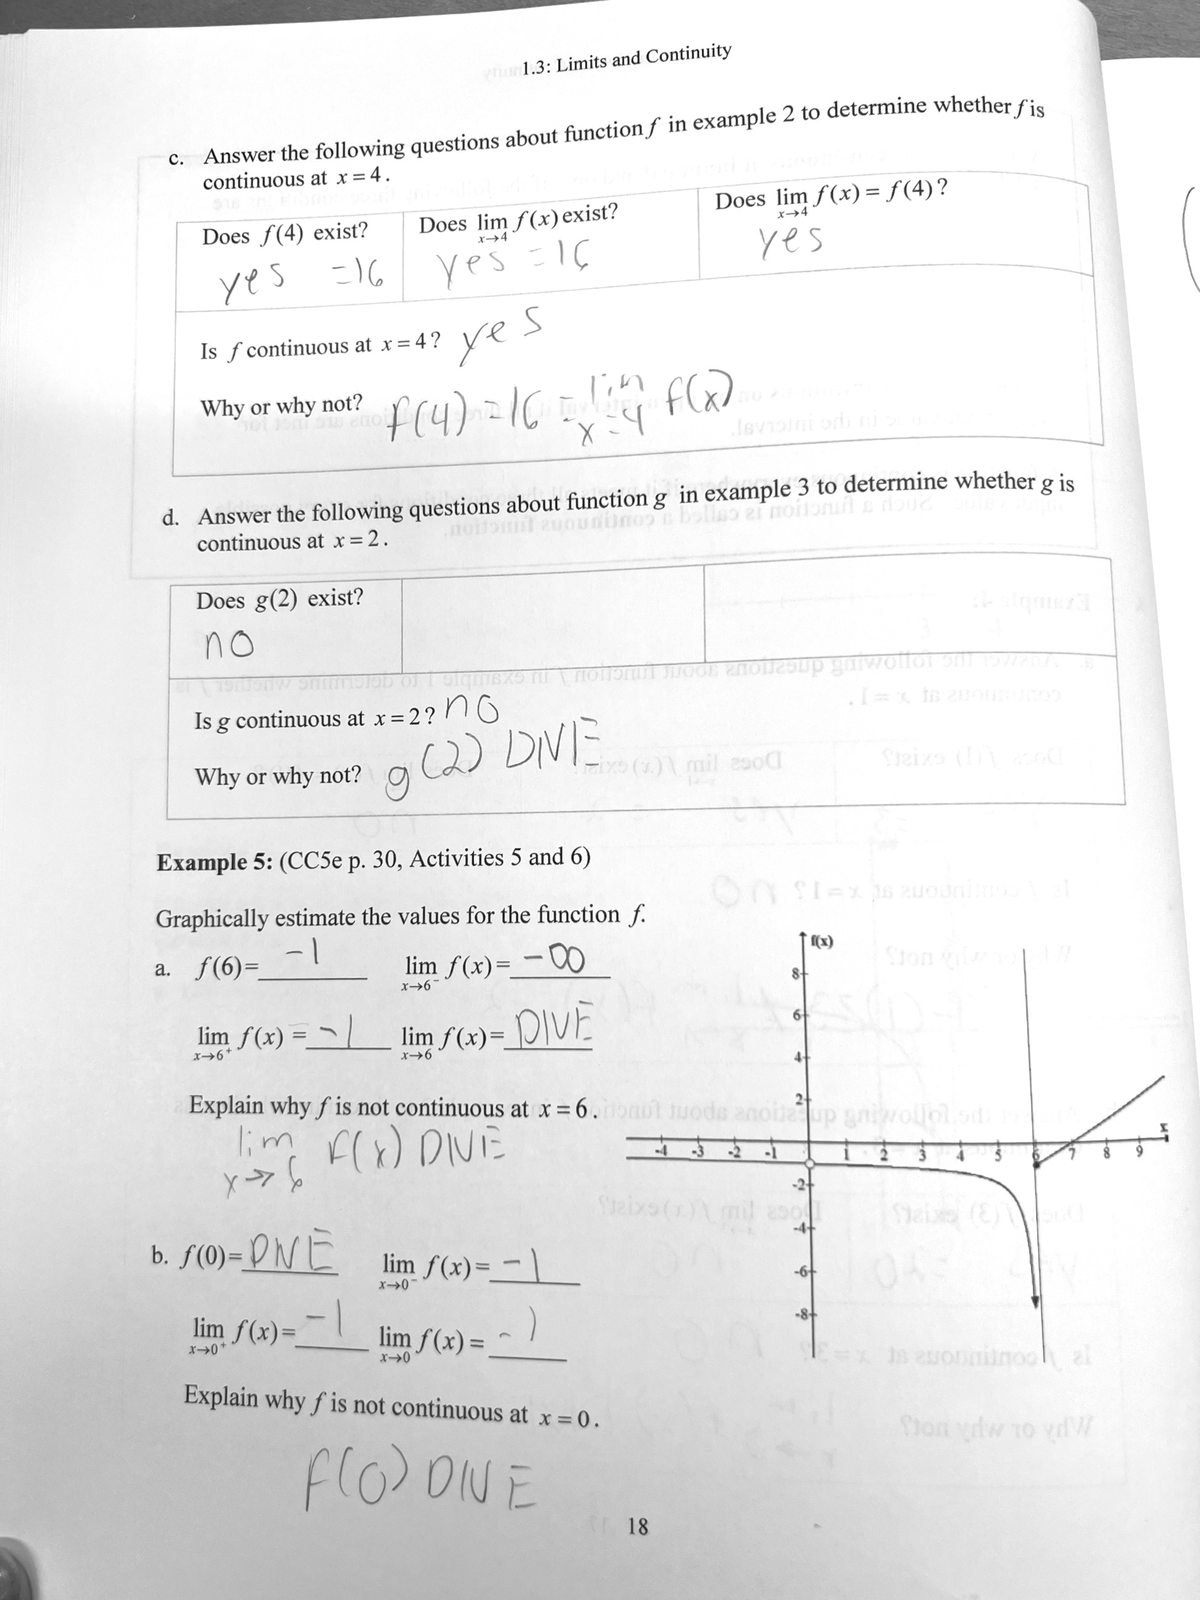 1.3: Limits and Continuity
c. Answer the following questions about function f in example 2 to determine whether f is
continuous at x = 4.
Does f(4) exist?
yes =16
Does lim x→4 f(x) exist?
yes =16
Does lim x→4 f(x) = f(4)?
yes
Is f continuous at x = 4? yes
Why or why not? f(4) = 16 = lim x=4 f(x)
d. Answer the following questions about function g in example 3 to determine whether g is
continuous at x = 2.
Does g(2) exist?
no
Is g continuous at x = 2? no
Why or why not? g(2) DNE
Example 5: (CC5e p. 30, Activities 5 and 6)
Graphically estimate the values for the function f.
a. f(6)= -1 lim x→6⁻ f(x)= -∞
lim x→6⁺ f(x) = -1 lim x→6 f(x)= DNE
Explain why f is not continuous at x = 6.
lim x→6 f(x) DNE
b. f(0)= DNE lim x→0⁻ f(x)= -1
lim x→0⁺ f(x)= -1 lim x→0 f(x) = -1
Explain why f is not continuous at x = 0.
f(0) DNE
f(x)
8
6
4
2
-4 -3 -2 -1 1 2 3 4 5 6 7 8 9 x
-2
-4
-6
-8
18